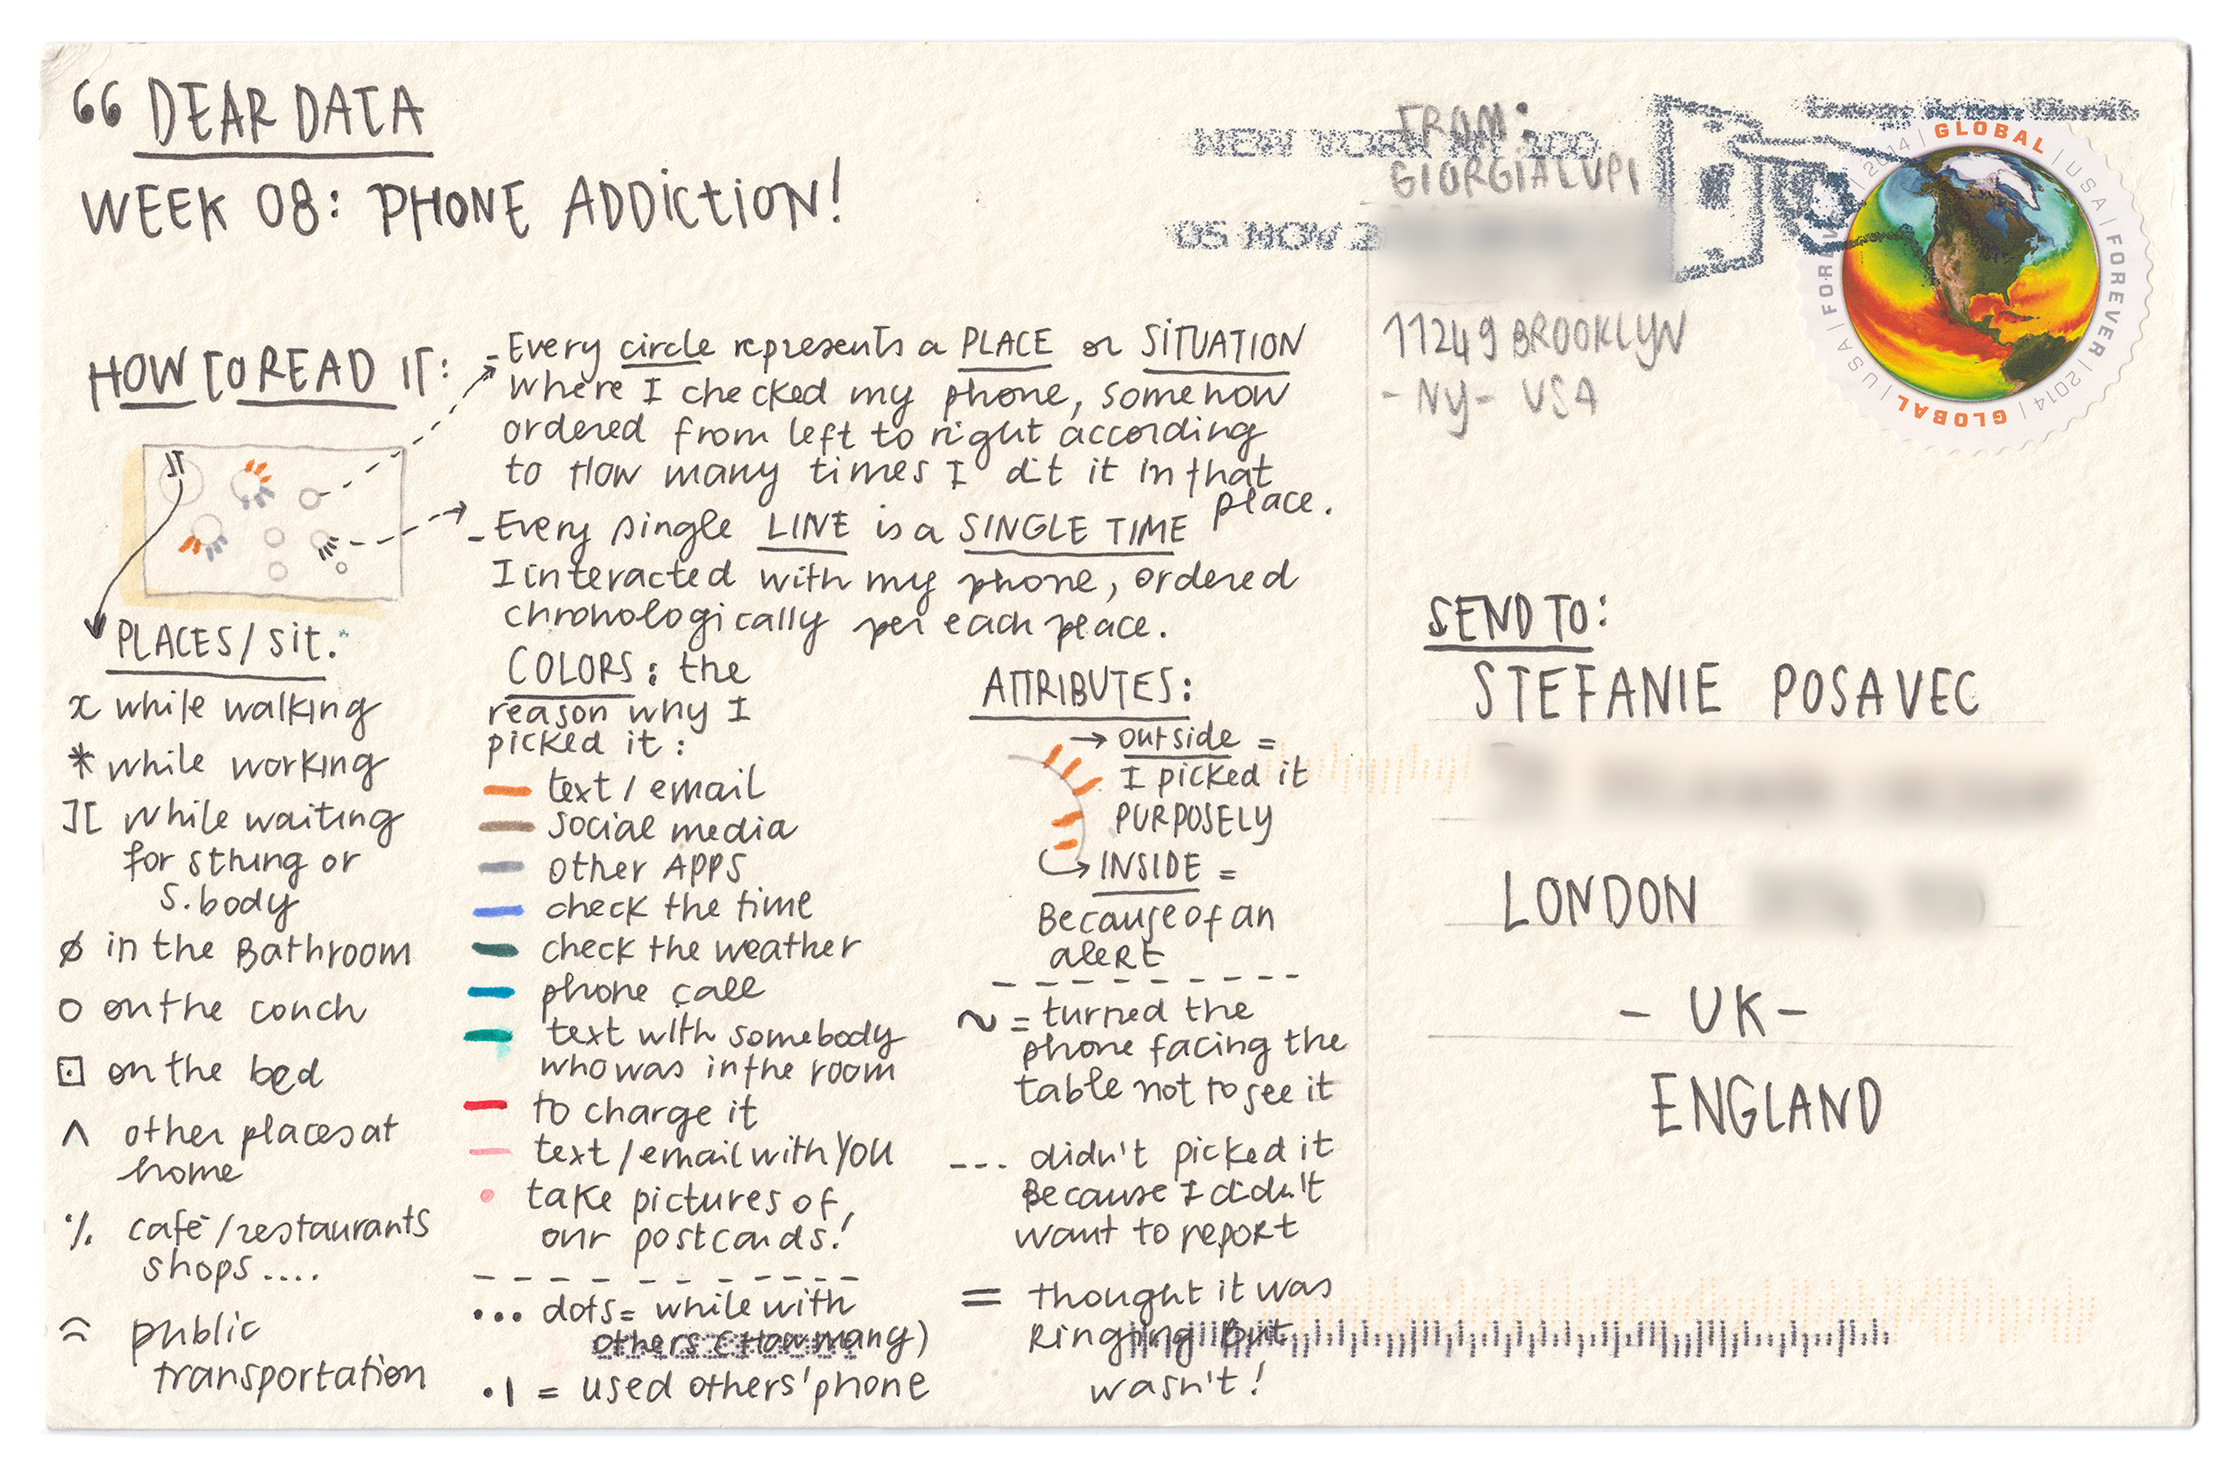 “ DEAR DATA
WEEK 08: PHONE ADDICTION!
HOW TO READ IT:
- Every circle represents a PLACE or SITUATION
where I checked my phone, somehow
ordered from left to right according
to HOW many times I dit it in that
place.
- Every single LINE is a SINGLE TIME
I interacted with my phone, ordered
chronologically per each peace.
][
PLACES/sit.
x while walking
* while working
][ while waiting
for sthing or
s.body
ø in the Bathroom
o on the couch
⊡ on the bed
^ other places at
home
·/. café/restaurants
shops....
public
transportation
COLORS: the
reason why I
picked it:
text / email
social media
other APPS
check the time
check the weather
phone call
text with somebody
who was in the room
to charge it
text / email with YOU
take pictures of
our postcards!
... dots = while with
others (How many)
·| = used others' phone
ATTRIBUTES:
→ outside =
I picked it
PURPOSELY
→ INSIDE =
Because of an
alert
~ = turned the
phone facing the
table not to see it
--- didn't picked it
Because I didn't
want to report
= thought it was
Ringing But
wasn't!
FROM:
GIORGIA LUPI
11249 BROOKLYN
- NY - USA
NEW YORK NY 100
05 NOV 2
GLOBAL | USA | FOREVER | 2014 | GLOBAL | USA | FOREVER | 2014
SEND TO:
STEFANIE POSAVEC
LONDON
- UK -
ENGLAND